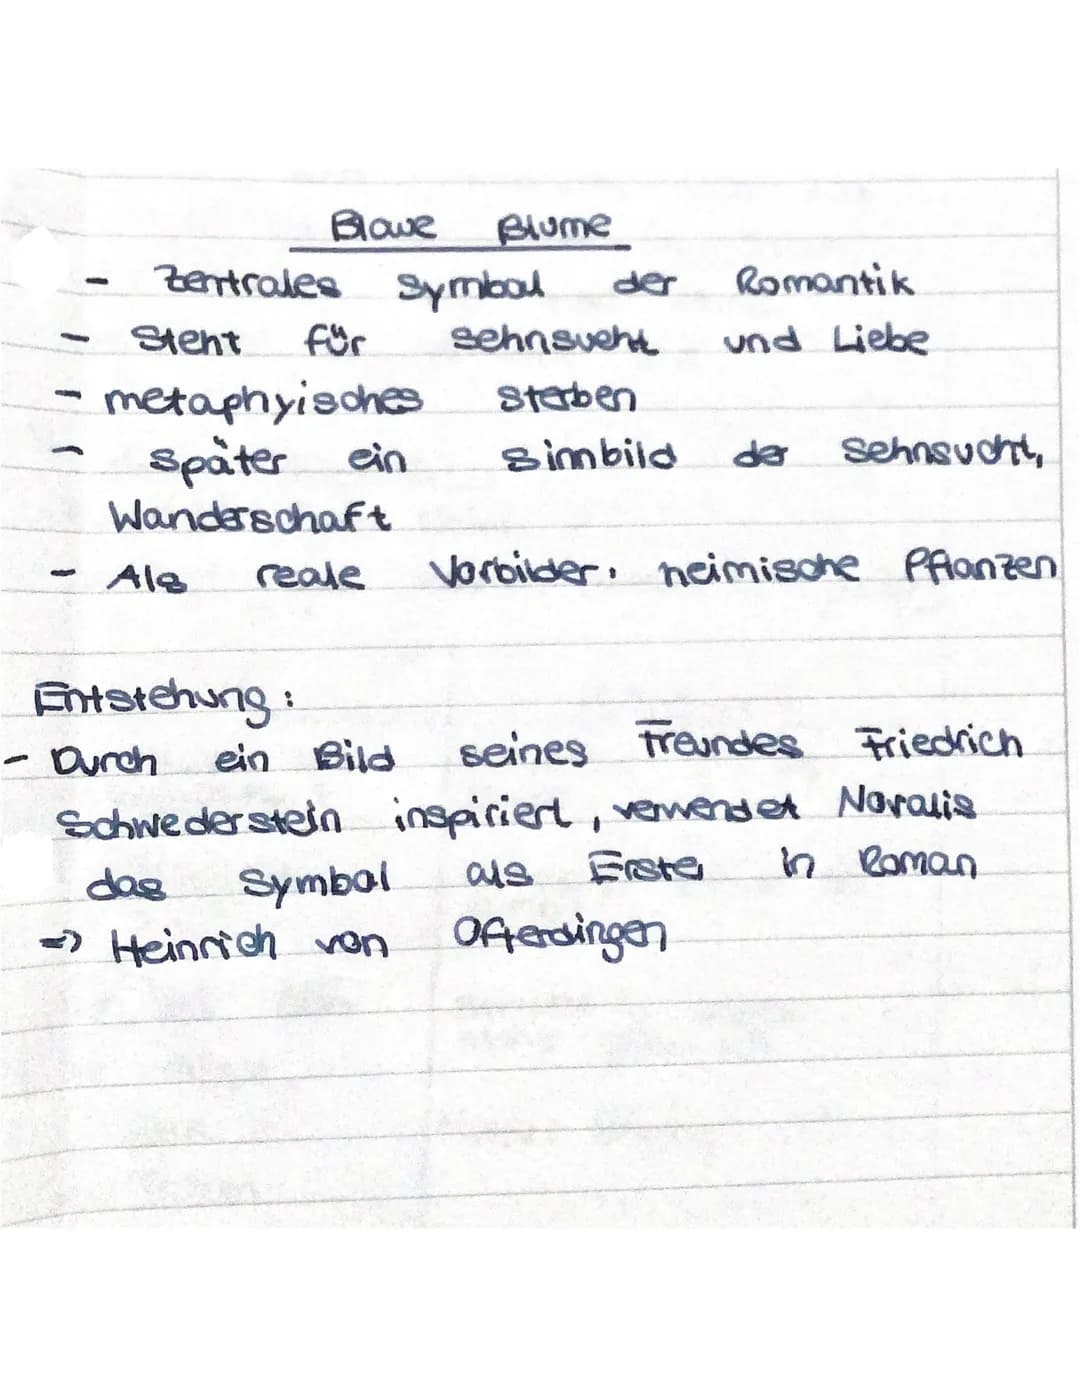 Blaue Blume
- Zentrales Symbol der Romantik
- Steht für Sehnsucht und Liebe
- metaphyisches sterben
- später ein Sinnbild der Sehnsucht,
Wanderschaft
- Als reale Vorbilder: heimische Pflanzen
Entstehung:
- Durch ein Bild seines Freundes Friedrich
Schwederstein inspiriert, verwendet Novalis
das Symbol als Erster in Roman
=> Heinrich von Ofterdingen